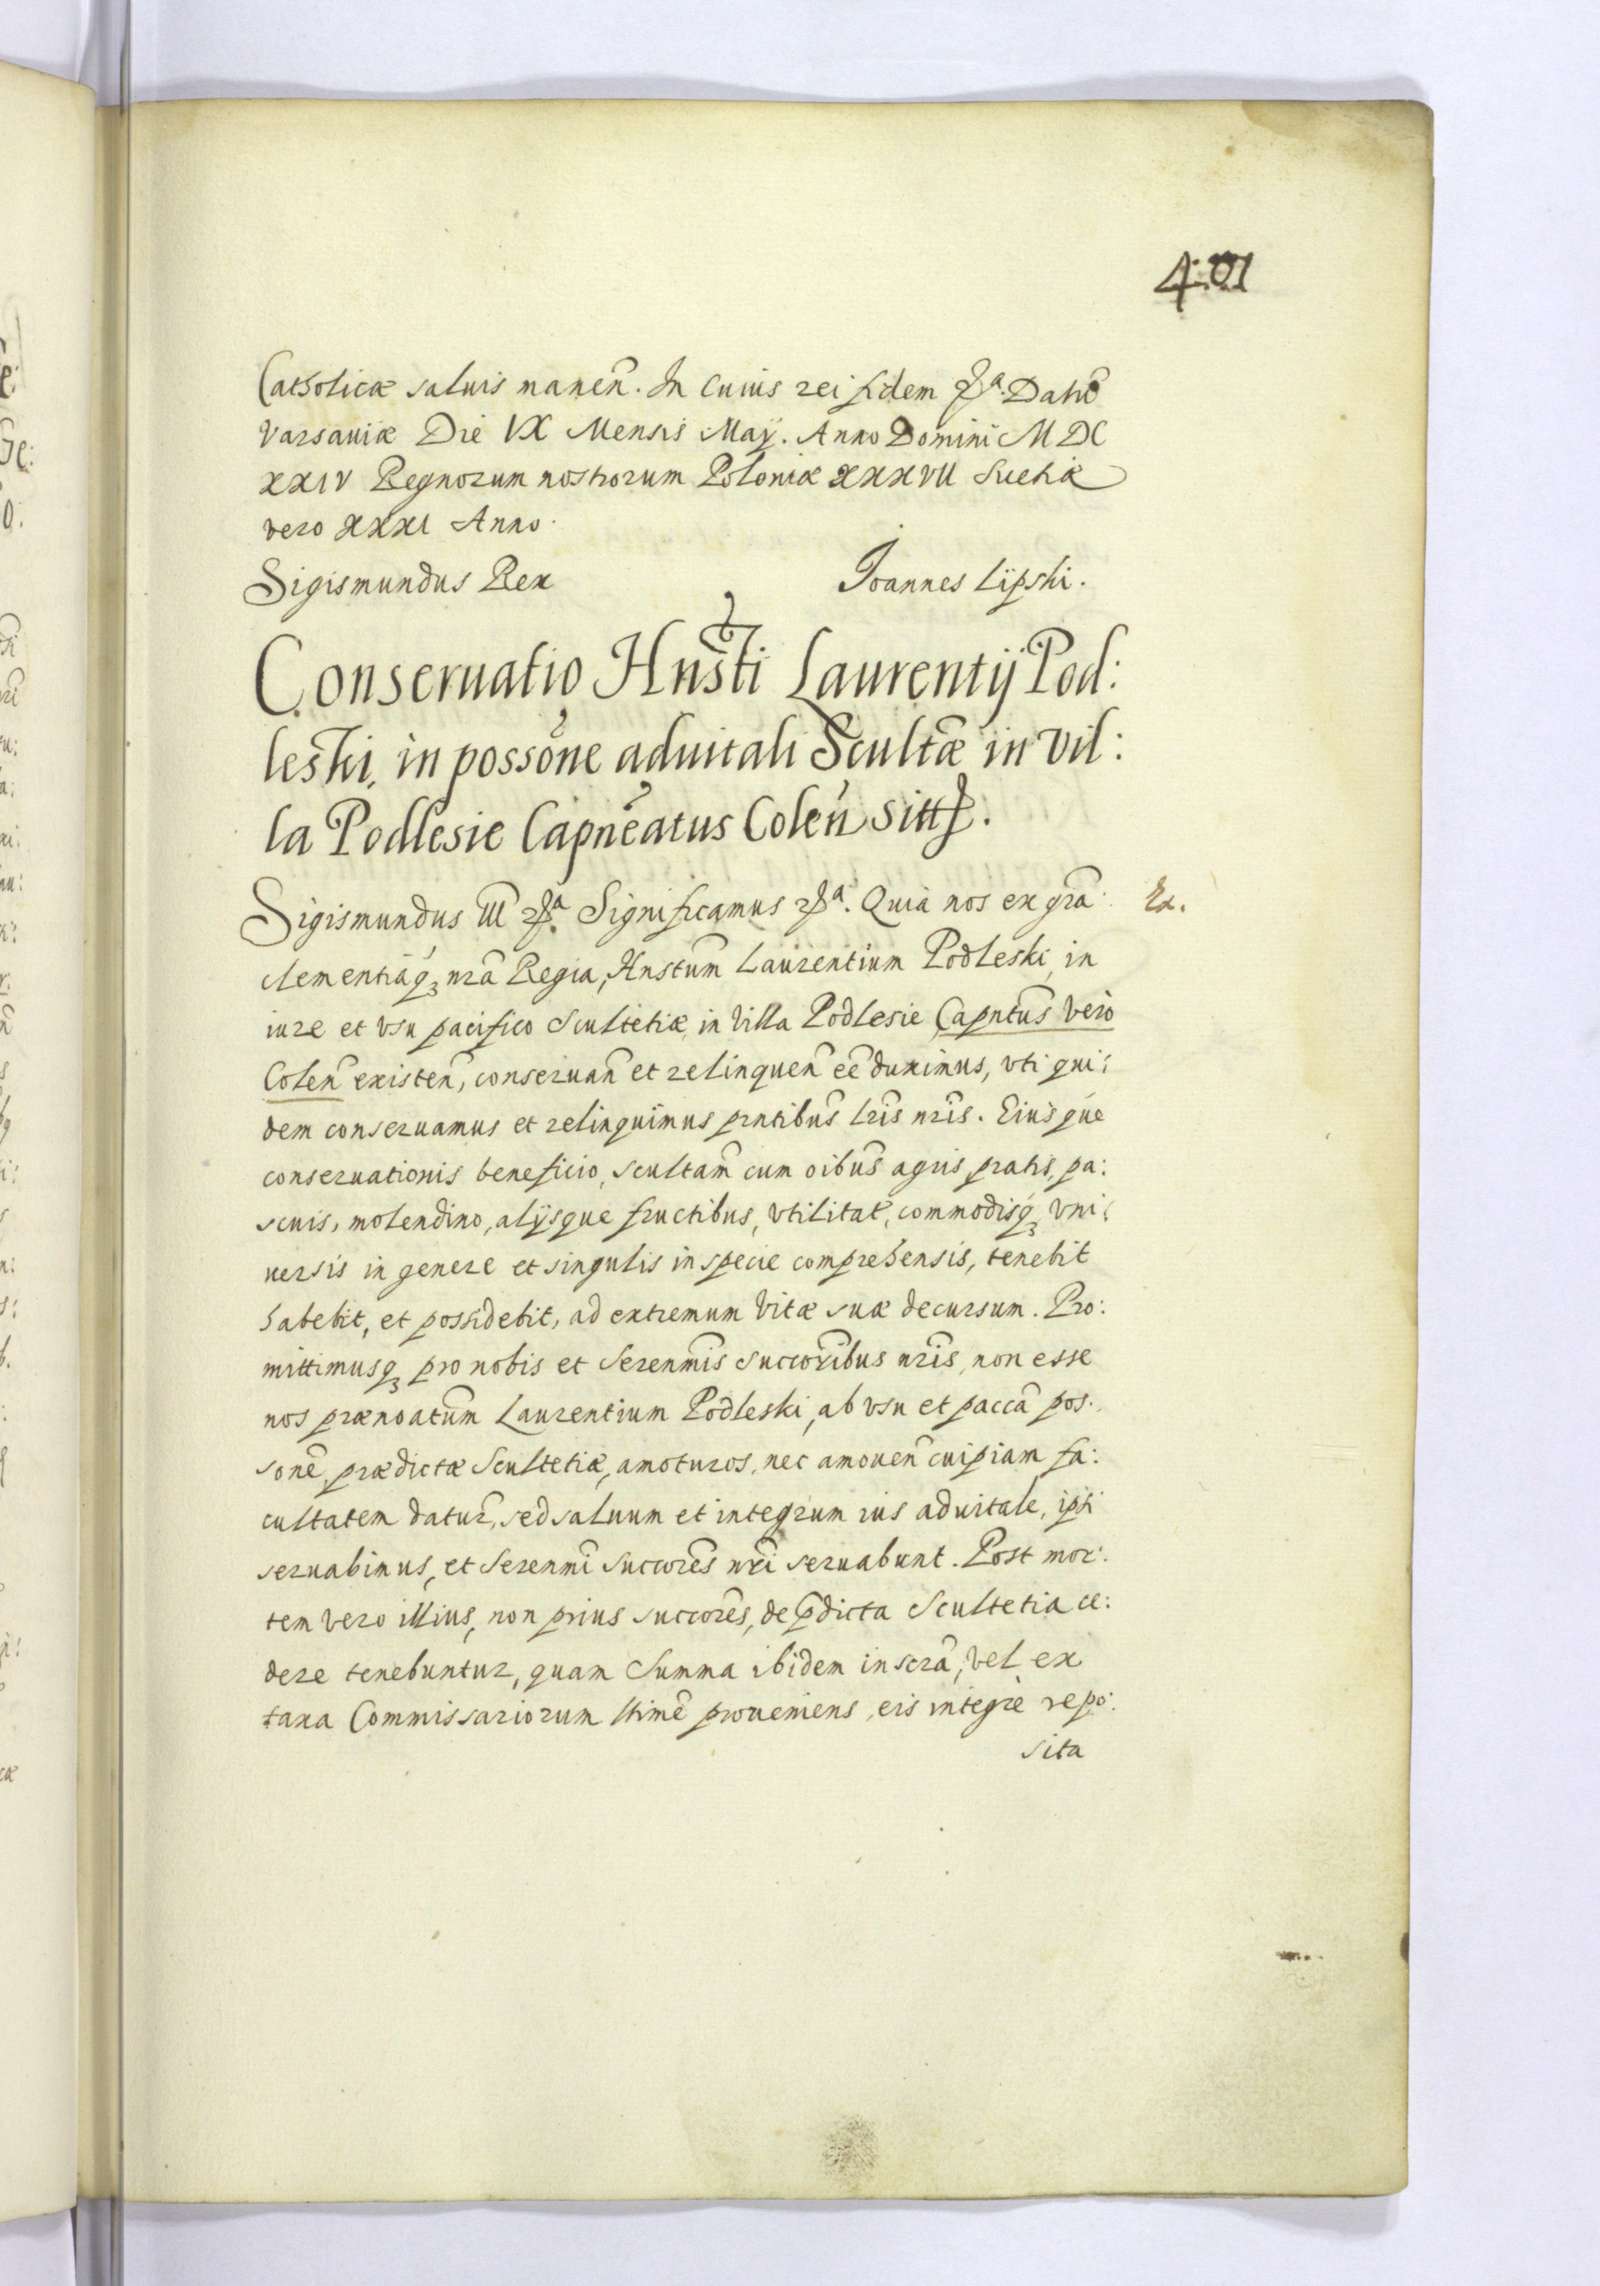 401
Catholicæ saluis manen̄. In Cuius rei fidem &a. Datū
Varsauiæ Die IX Mensis Maÿ. Anno Domini MDC
XXIV Regnorum nostrorum Poloniæ XXXVII Suetiæ
vero XXXI Anno.
Sigismundus Rex Joannes Lipski.
Conseruatio Hnsti Laurentij Pod:
leski, in possōne aduitali Scultæ in Vil:
la Podlesie Capneatus Colen̄ sitt.
Sigismundus III &a Significamus &a. Quia nos ex grā Ex.
clementiāq₃ nrā Regia, Hnstum Laurentium Podleski, in
iure et vsu pacifico Scultetiæ, in Villa Podlesie Capntus vero
Colen̄ existen̄, conseruan̄ et relinquen̄ eē duximus, vti qui:
dem conseruamus et relinquimus prntibus lris nris. Eiusque
conseruationis beneficio, scultam̄ cum oibus agris, pratis, pa:
scuis, molendino, alÿsque fructibus, vtilitat̄, commodisq₃ vni:
uersis in genere et singulis in specie comprehensis, tenebit
habebit, et possidebit, ad extremum Vitæ suæ decursum. Pro:
mittimusq₃ pro nobis et Serenmis Succoribus nris, non esse
nos prænoatum Laurentium Podleski, ab vsu et paccā pos:
sonē, prædictæ Scultetiæ, amoturos, nec amouen̄ cuipiam fa:
cultatem datur̄, sed saluum et integrum ius aduitale, ipsi
seruabimus, et Serenmi Succores nri seruabunt. Post mor:
tem vero illius, non prius succores, de p̄dicta Scultetia ce:
dere tenebuntur, quam Summa ibidem inscrā, vel ex
taxa Commissariorum ltimē proueniens, eis integre repo:
sita